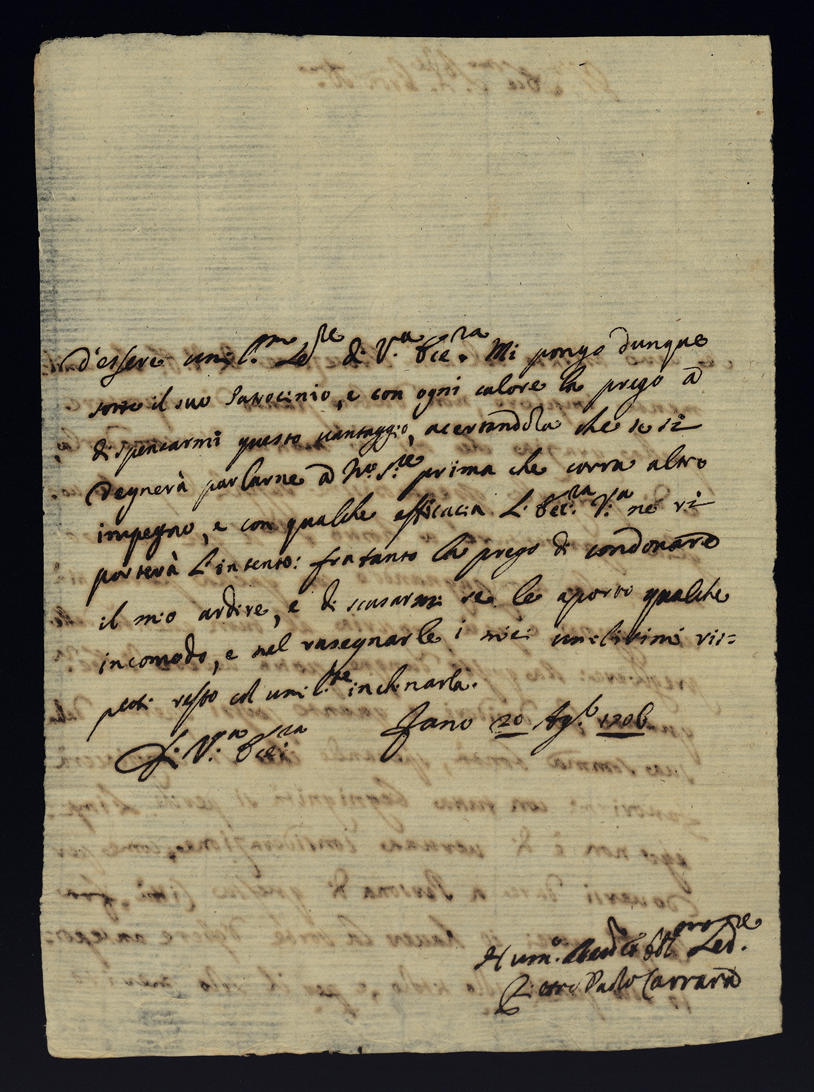 d'essere umil.mo Ser.re di V.ra Ecc.za Mi pongo dunque
sotto il suo Patrocinio, e con ogni calore la prego à
dispencarmi questo vantaggio, acertandola che se si
degnerà parlarne à N.ro S.re prima che corra altro
impegno, e con qualche efficacia L. Ecc.za V.ra ne ri
porterà L'intento: fratanto la prego di condonare
il mio ardire, e di scusarmi se le aporto qualche
incomodo, e nel rasegnarle i miei umilissimi ris=
petti resto col umil.te inchinarla.
Di V.ra Ecc.za Fano 20 Ag.to 1706
Hum.o
Pietro Paolo Carrara